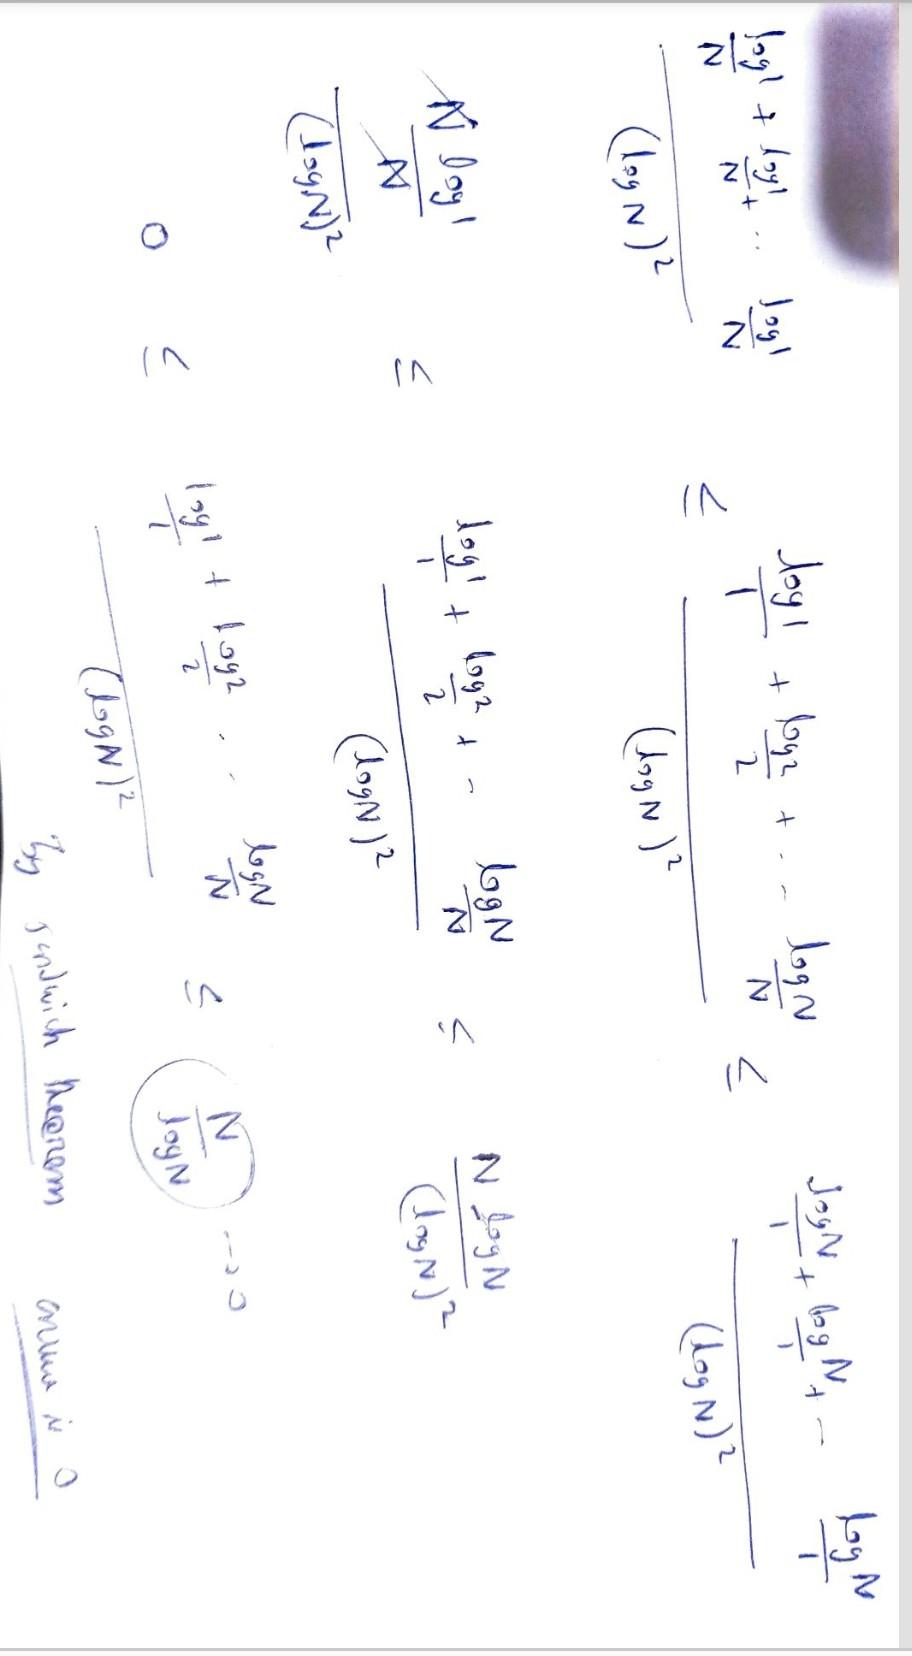 (log1/N + log1/N + .. log1/N) / (log N)² ≤ (log1/1 + log2/2 + . . - logN/N) / (log N)² ≤ (logN/1 + logN/1 + - logN/1) / (log N)²
(N log1/N) / (log N)² ≤ (log1/1 + log2/2 + - logN/N) / (log N)² ≤ N logN / (log N)²
0 ≤ (log1/1 + log2/2 . . logN/N) / (log N)² ≤ N/logN → 0
By sandwich theorem answer is 0